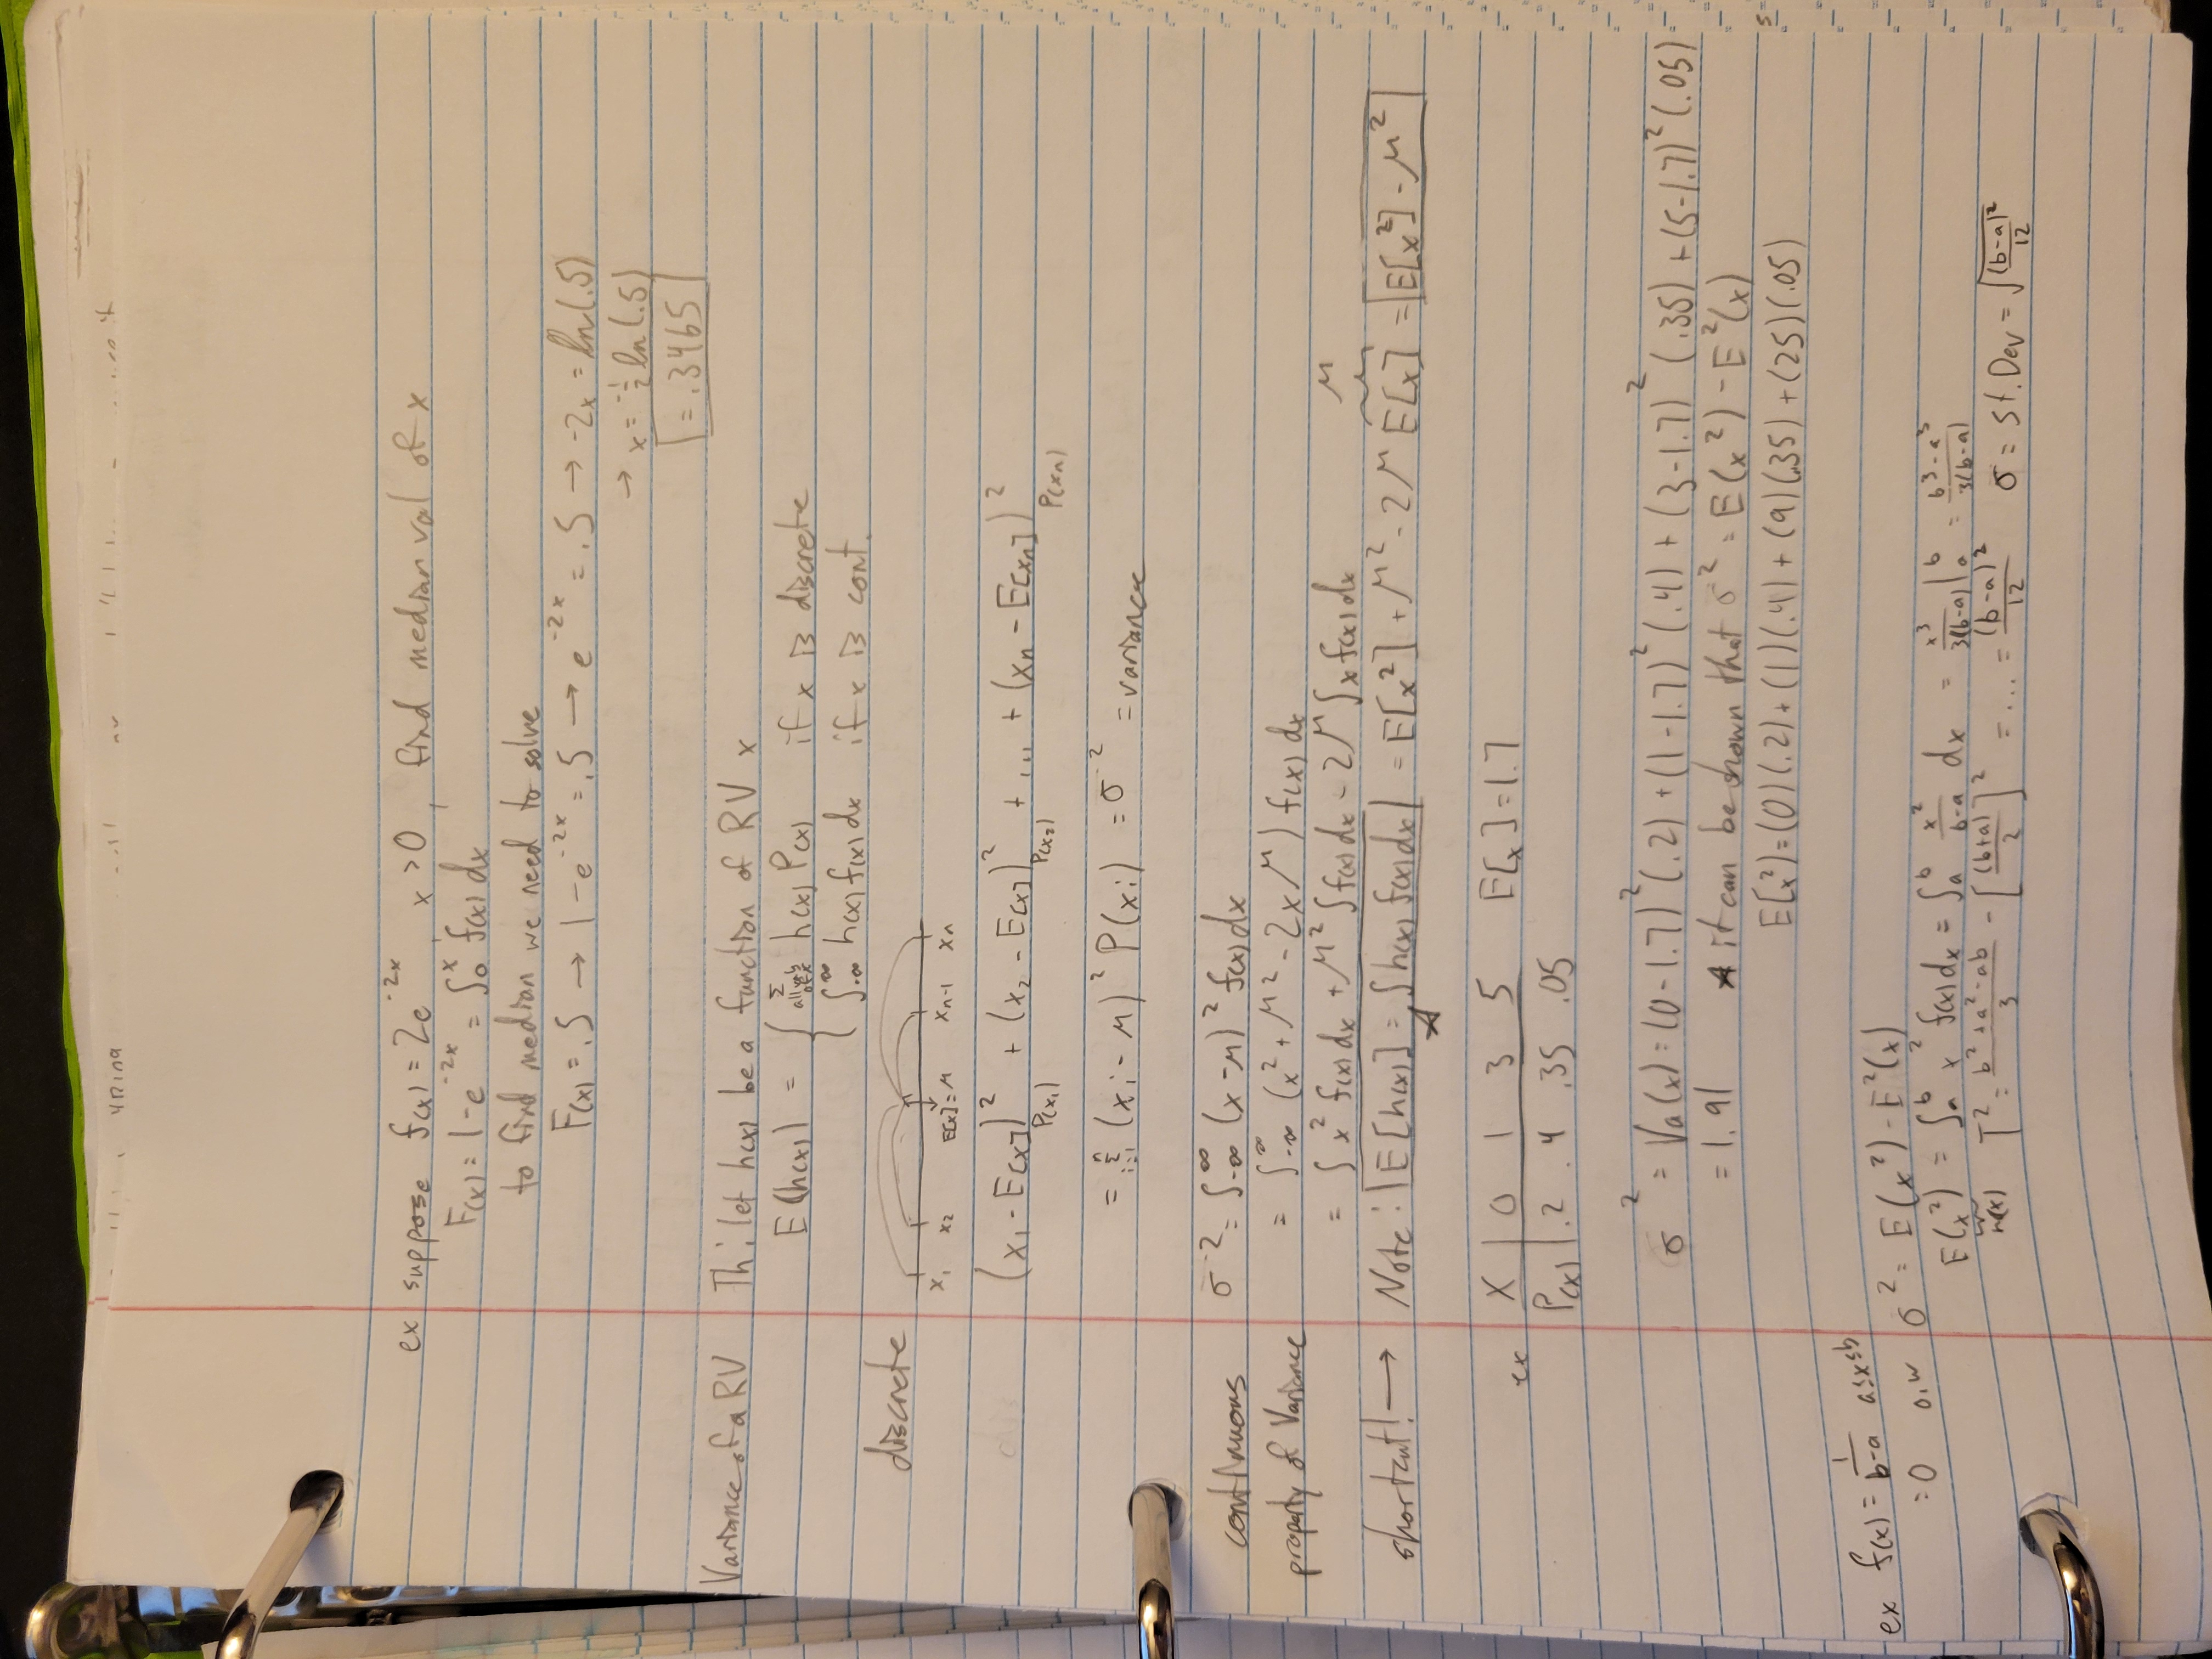 ex suppose f(x) = 2e^-2x, x > 0, find median val of x
F(x) = 1 - e^-2x = ∫₀^x f(x) dx
to find median we need to solve
F(x) = .5 → 1 - e^-2x = .5 → e^-2x = .5 → -2x = ln(.5)
→ x = -1/2 ln(.5)
= .3465
Variance of a RV Th: let h(x) be a function of RV x
E(h(x)) = { Σ all vals of x h(x) P(x) if x is discrete
∫-∞^∞ h(x) f(x) dx if x is cont.
discrete
x₁ x₂ E[x] = μ xn-1 xn
(x₁ - E[x])² P(x₁) + (x₂ - E[x])² P(x₂) + ... + (xn - E[xn])² P(xn)
= Σ i=1 ^n (xi - μ)² P(xi) = σ² = variance
continuous σ² = ∫-∞^∞ (x - μ)² f(x) dx
property of Variance = ∫-∞^∞ (x² + μ² - 2xμ) f(x) dx
= ∫ x² f(x) dx + μ² ∫ f(x) dx - 2μ ∫ x f(x) dx
μ
shortcut! → Note: E[h(x)] = ∫ h(x) f(x) dx = E[x²] + μ² - 2μ E[x] = E[x²] - μ²
ex X 0 1 3 5 E[x] = 1.7
P(x) .2 .4 .35 .05
σ² = Va(x) = (0 - 1.7)² (.2) + (1 - 1.7)² (.4) + (3 - 1.7)² (.35) + (5 - 1.7)² (.05)
= 1.91 ☆ it can be shown that σ² = E(x²) - E²(x)
E(x²) = (0)(.2) + (1)(.4) + (9)(.35) + (25)(.05)
ex f(x) = 1/(b-a) a≤x≤b
= 0 o.w σ² = E(x²) - E²(x)
E(x²) = ∫a^b x² f(x) dx = ∫a^b x²/(b-a) dx = x³/3(b-a) |a^b = b³-a³/3(b-a)
h(x) σ² = b²+a²-ab/3 - [(b+a)/2]² = ... = (b-a)²/12 σ = St. Dev = √(b-a)²/12